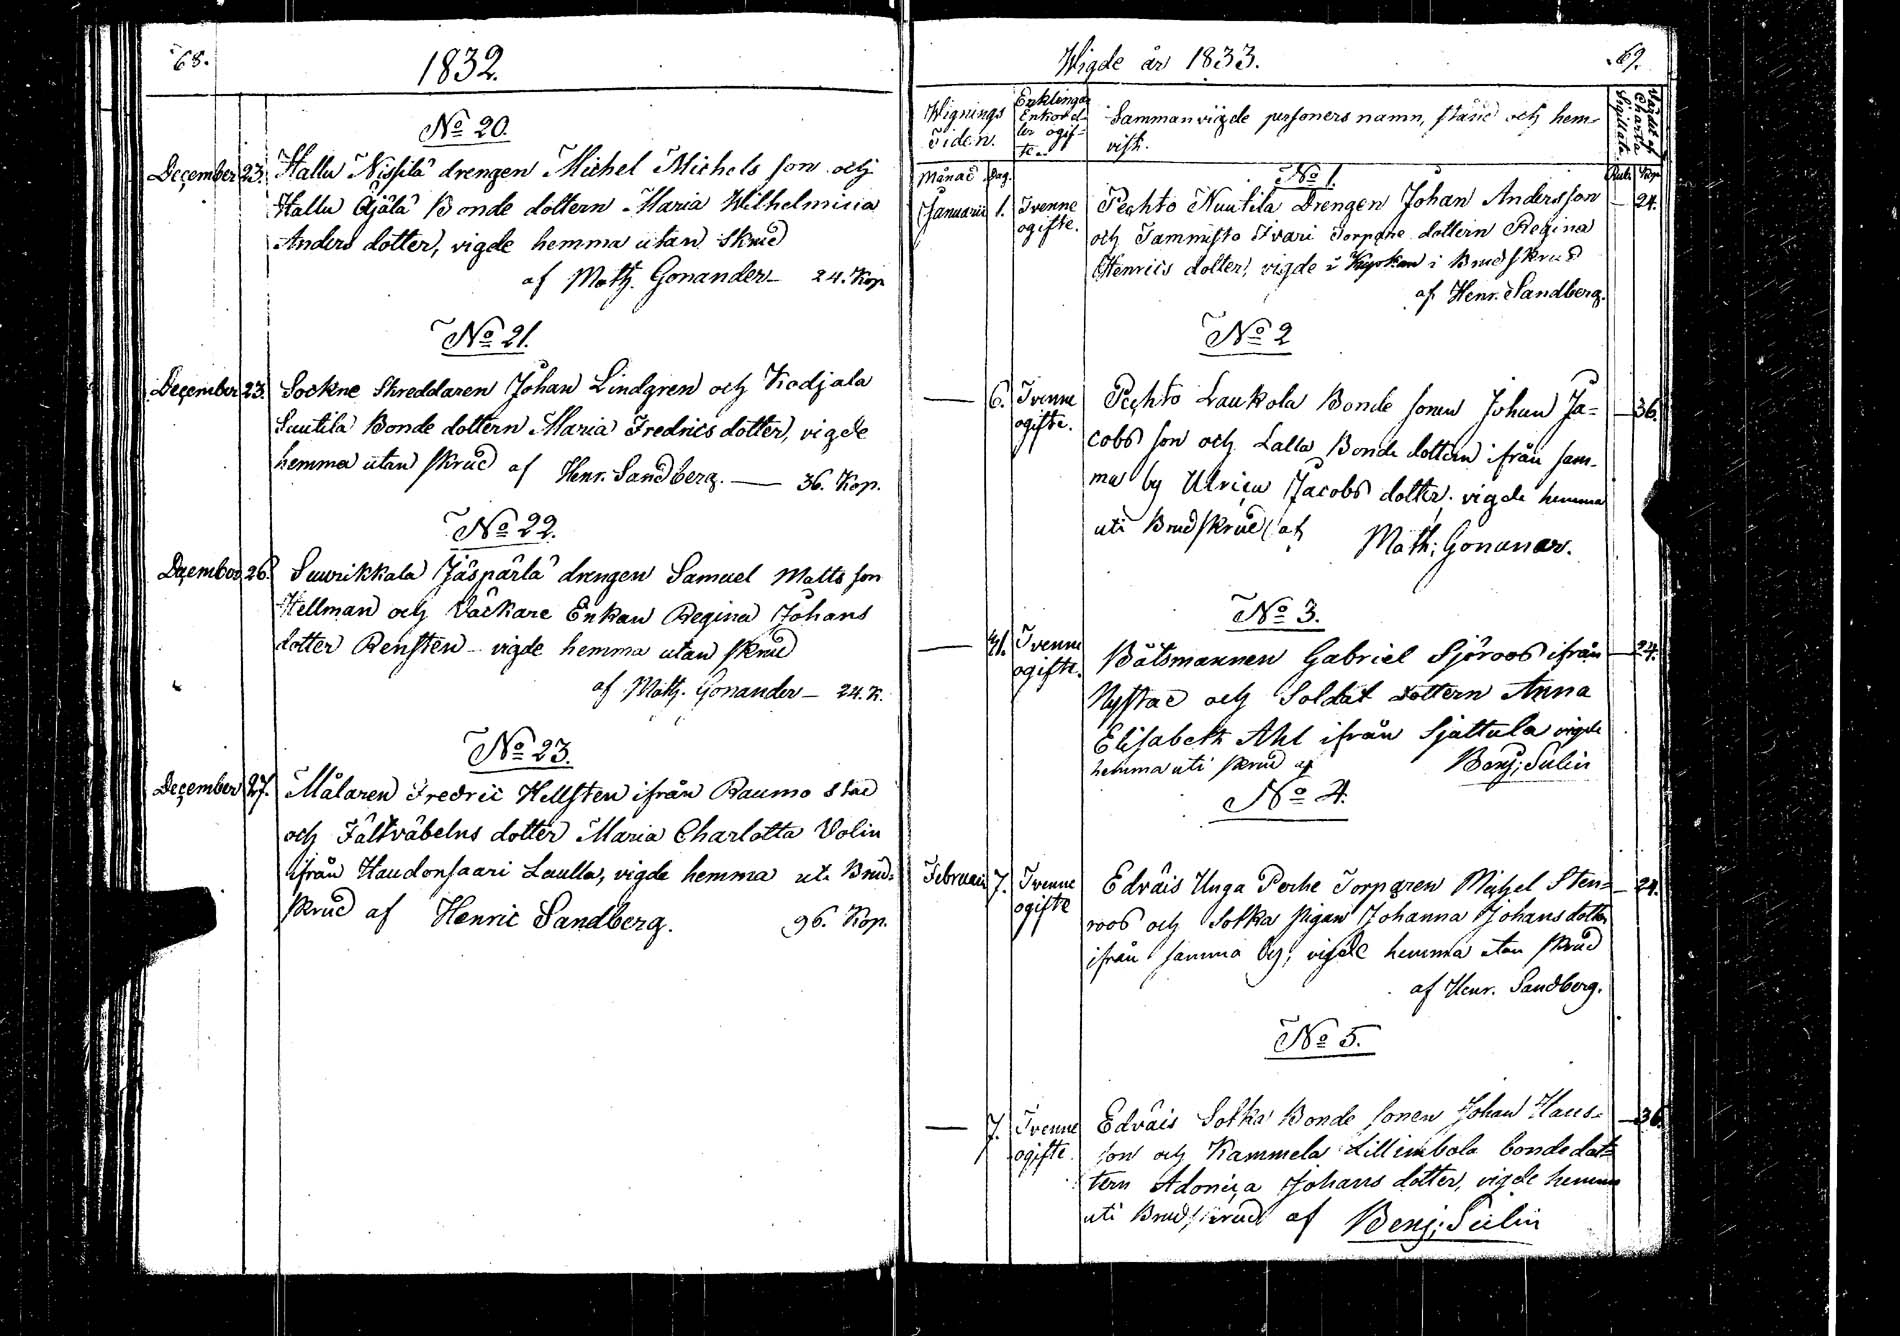 68.
1832.
No 20.
December 23. Hallu Nissilä drengen Michel Michels son och
Hallu Äjälä Bonde dottern Maria Wilhelmina
Anders dotter, vigde hemma utan skrud
af Math. Gonander — 24. Kop
No 21.
December 23. Sockne Skreddaren Johan Lindgren och Kodjala
Suutila Bonde dottern Maria Fredrics dotter, vigde
hemma utan skrud af Henr. Sandberg. — 36. Kop.
No 22.
December 26. Suurikkala Jäspärlä drengen Samuel Matts son
Hellman och Väckare Enkan Regina Johans
dotter Rensten vigde hemma utan skrud
af Math. Gonander — 24. K.
No 23.
December 27. Målaren Fredric Hellsten ifrån Raumo stad
och Fältväbelns dotter Maria Charlotta Volin
ifrån Haudonsaari Laulla, vigde hemma uti Brud-
skrud af Henric Sandberg. 96. Kop.
Wigde år 1833. 69.
Wignings Tiden.
Enklingar
Enkor el-
ler ogif-
te.
Sammanvigde personers namn, stånd och hem-
vist.
Värdet af
Charta
Sigillata.
Månad Dag. Rub. Kop
No 1.
Januarii 1. Tvenne ogifte. Pechto Nuutila Drengen Johan Andersson — 24.
och Tammisto Ivari Torpare dottern Regina
Henrics dotter, vigde i Kyrkan i Brudskrud
af Henr. Sandberg.
No 2
— 6. Tvenne ogifte. Pechto Laukola Bonde sonen Johan Ja= — 36.
cobs son och Lalla Bonde dottern ifrån sam-
ma by Ulrica Jacobs dotter, vigde hemma
uti Brudskrud af Math: Gonander.
No 3.
— Tvenne ogifte. Båtsmannen Gabriel Sjöroos ifrån — 24.
Nystad och Soldat dottern Anna
Elisabeth Ahl ifrån Sjättula vigde
hemma uti skrud af Benj; Sulin
No 4.
Februarii 7. Tvenne ogifte Edväis Unga Perhe Torparen Michel Sten= — 24.
roos och Sotka pigan Johanna Johans dotter
ifrån samma by, vigde hemma utan skrud
af Henr. Sandberg.
No 5.
— 7. Tvenne ogifte. Edväis Sotka Bonde sonen Johan Hans= — 36.
son och Kammela Lillimbola bonde dot=
tern Adonica Johans dotter, vigde hemma
uti Brudskrud af Benj; Sulin